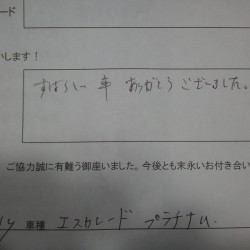 ード
いします！
すばらしい 車 ありがとう ございました。
ご協力誠に有難う御座いました。今後とも末永いお付き合い
車種 エスカレード プラチナム